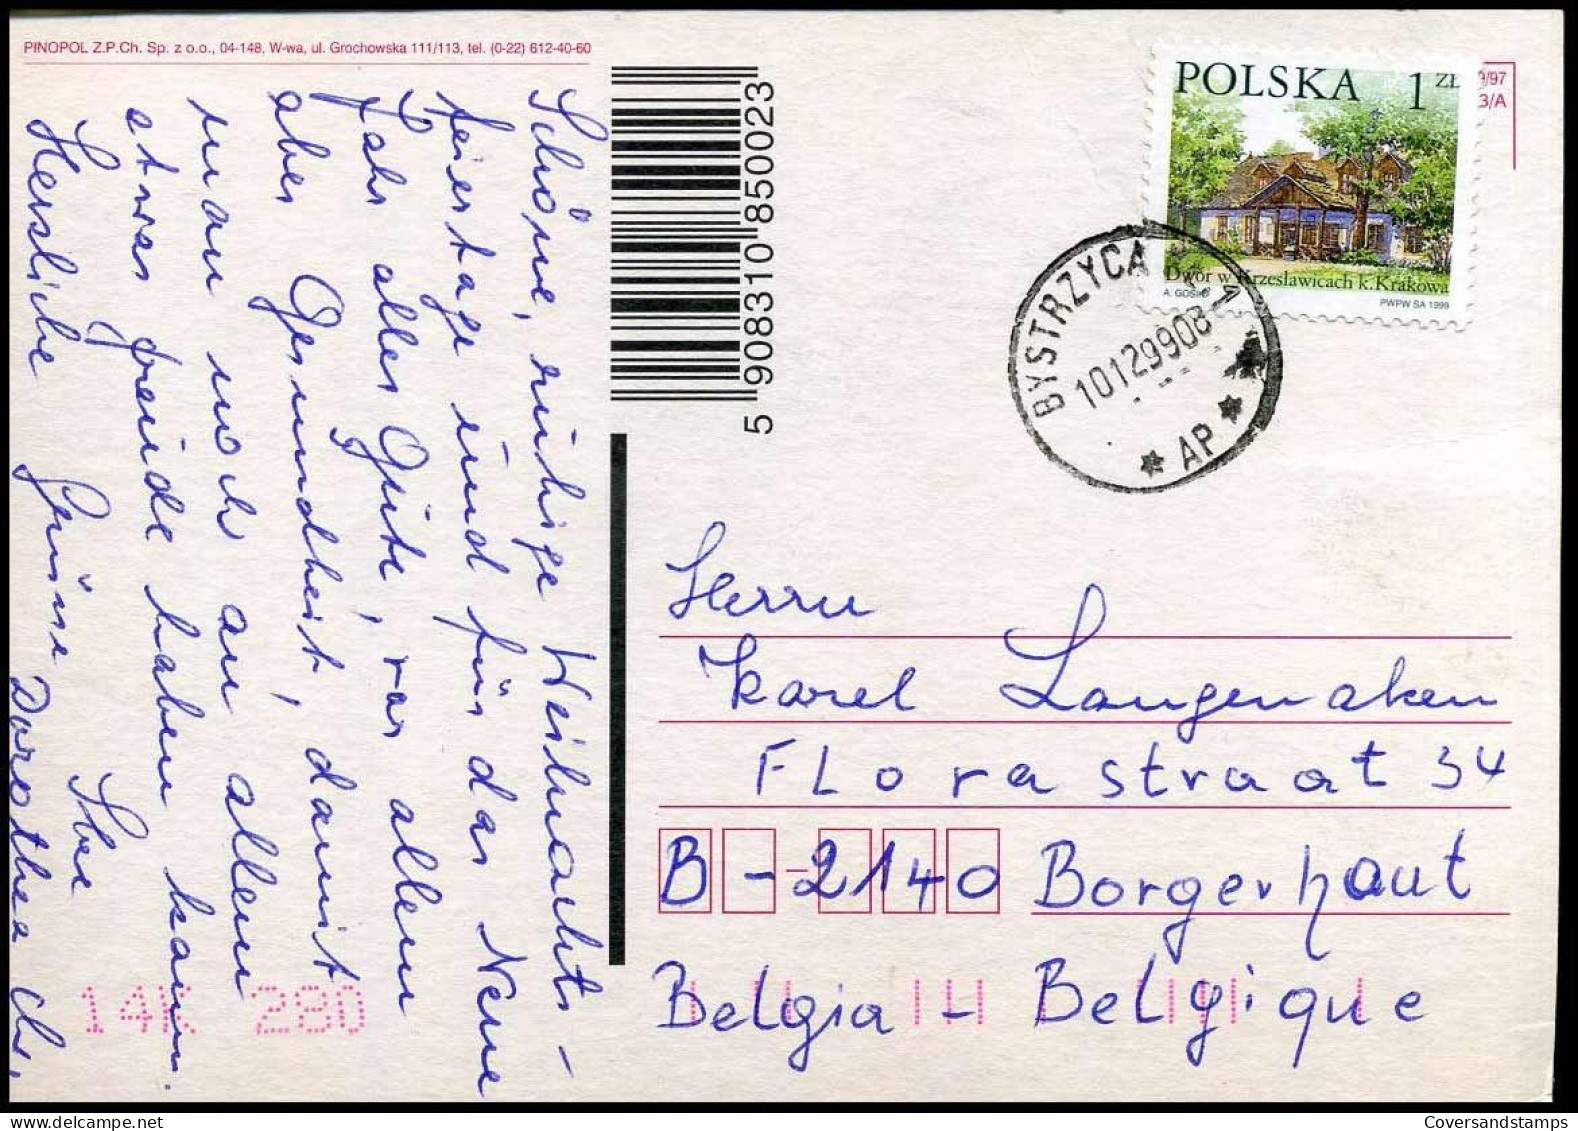 PINOPOL Z.P.Ch. Sp. z o.o., 04-148, W-wa, ul. Grochowska 111/113, tel. (0-22) 612-40-60
Schöne, ruhige Weihnachts-
feiertage und für das Neue
Jahr alles Gute, vor allem
aber Gesundheit, damit
man noch an allem
etwas Freude haben kann.
Herzliche Grüsse Ihre
Dorothea Ch.
5 908310 850023
POLSKA 1 ZŁ
Dwór w Krzesławicach k. Krakowa
PWPW SA 1999
9/97
3/A
BYSTRZYCA
10129908
* AP *
Herrn
Karel Langenaken
Florastraat 34
B-2140 Borgerhout
Belgia - Belgique
14K 280
Coversandstamps